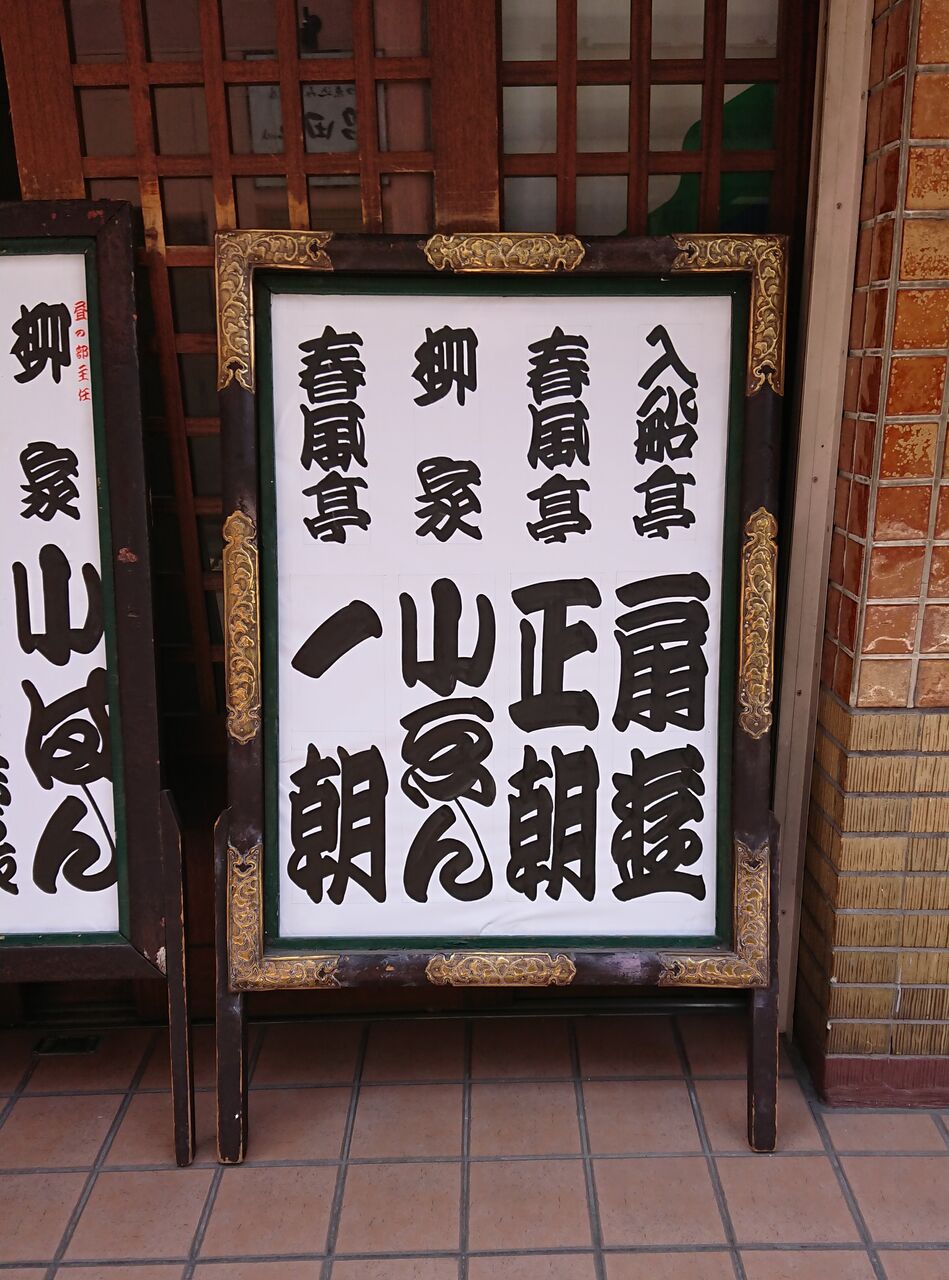 入船亭 扇遊
春風亭 正朝
柳家 小ゑん
春風亭 一朝
昼の部主任
柳家